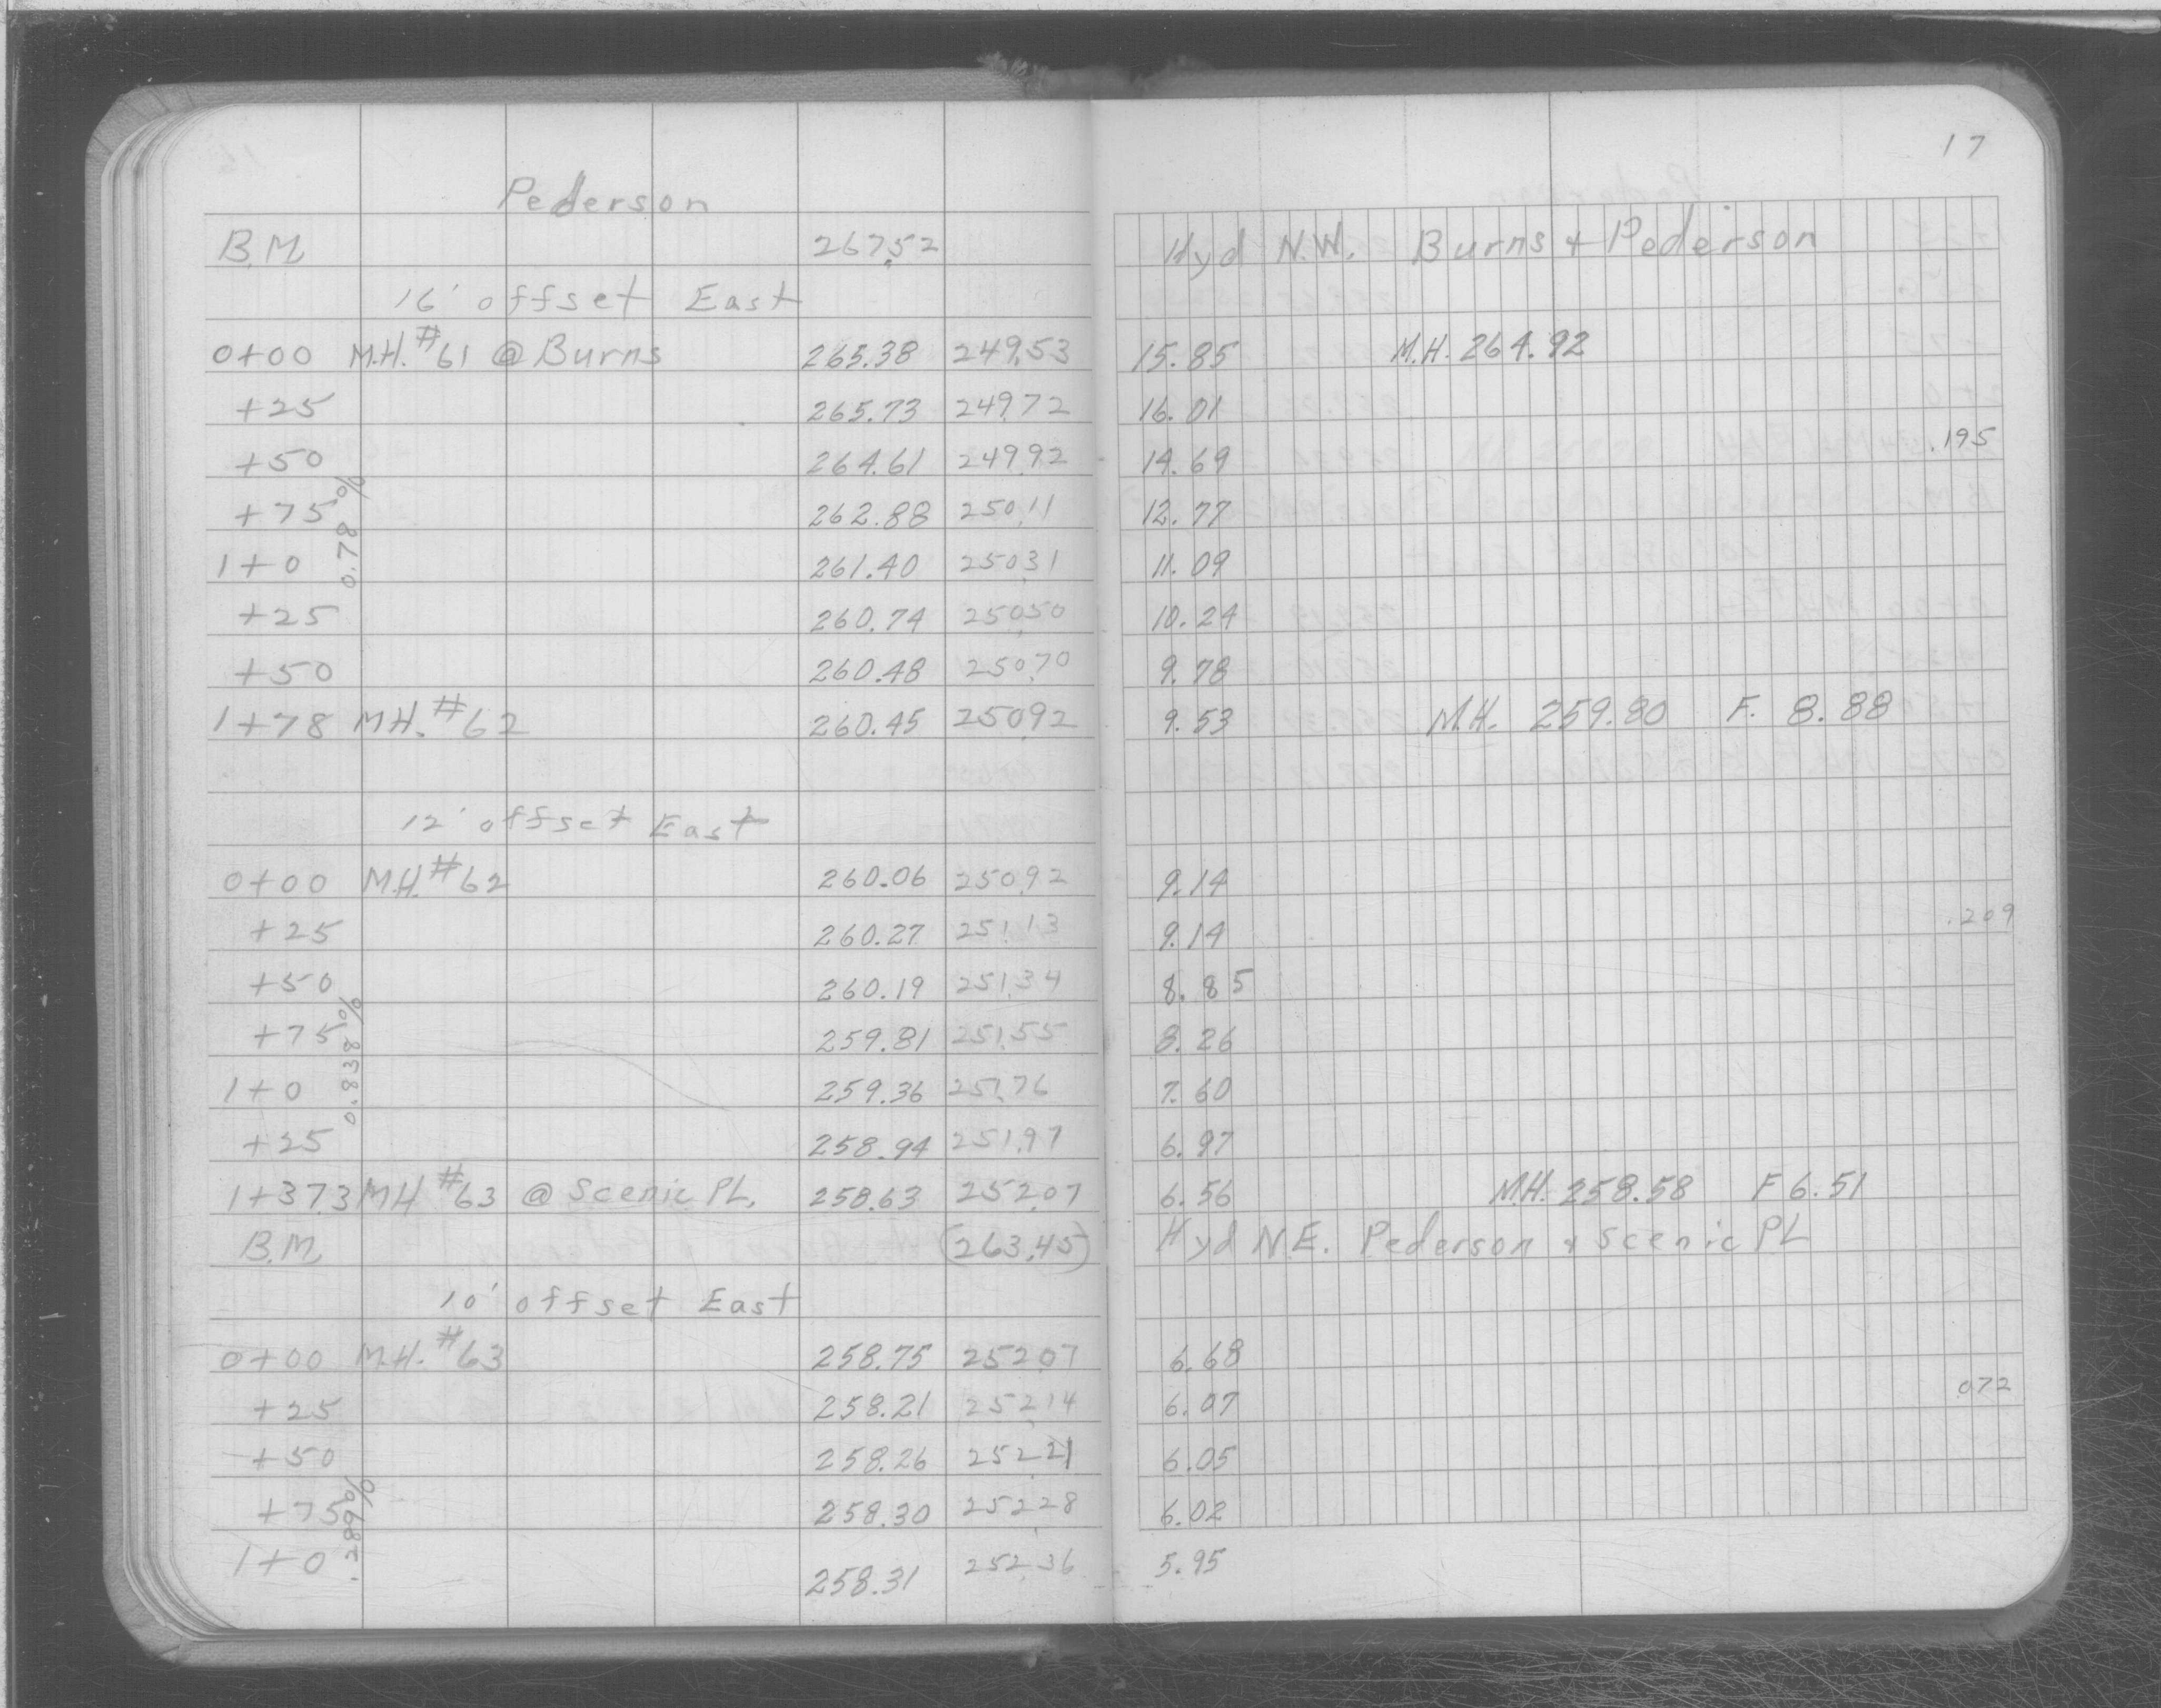 17
Pederson
B.M. 267.52 Hyd N.W. Burns + Pederson
16' offset East
0+00 M.H. #61 @ Burns 265.38 249.53 15.85 M.H. 264.92
+25 265.73 249.72 16.01
+50 264.61 249.92 14.69 .195
+75 262.88 250.11 12.77
0.78%
1+0 261.40 250.31 11.09
+25 260.74 250.50 10.24
+50 260.48 250.70 9.78
1+78 M.H. #62 260.45 250.92 9.53 M.H. 259.80 F. 8.88
12' offset East
0+00 M.H. #62 260.06 250.92 9.14
+25 260.27 251.13 9.14 .209
+50 260.19 251.34 8.85
+75 259.81 251.55 8.26
0.838%
1+0 259.36 251.76 7.60
+25 258.94 251.97 6.97
1+37.3 MH #63 @ Scenic PL. 258.63 252.07 6.56 M.H. 258.58 F 6.51
B.M. (263.45) Hyd N.E. Pederson + Scenic PL
10' offset East
0+00 M.H. #63 258.75 252.07 6.68
+25 258.21 252.14 6.07 .072
+50 258.26 252.21 6.05
+75 258.30 252.28 6.02
.289%
1+0 258.31 252.36 5.95